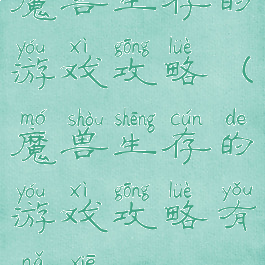 魔兽生存的
yóu xì gōng luè
游戏攻略（
mó shòu shēng cún de
魔兽生存的
yóu xì gōng luè yǒu
游戏攻略有
nǎ xiē